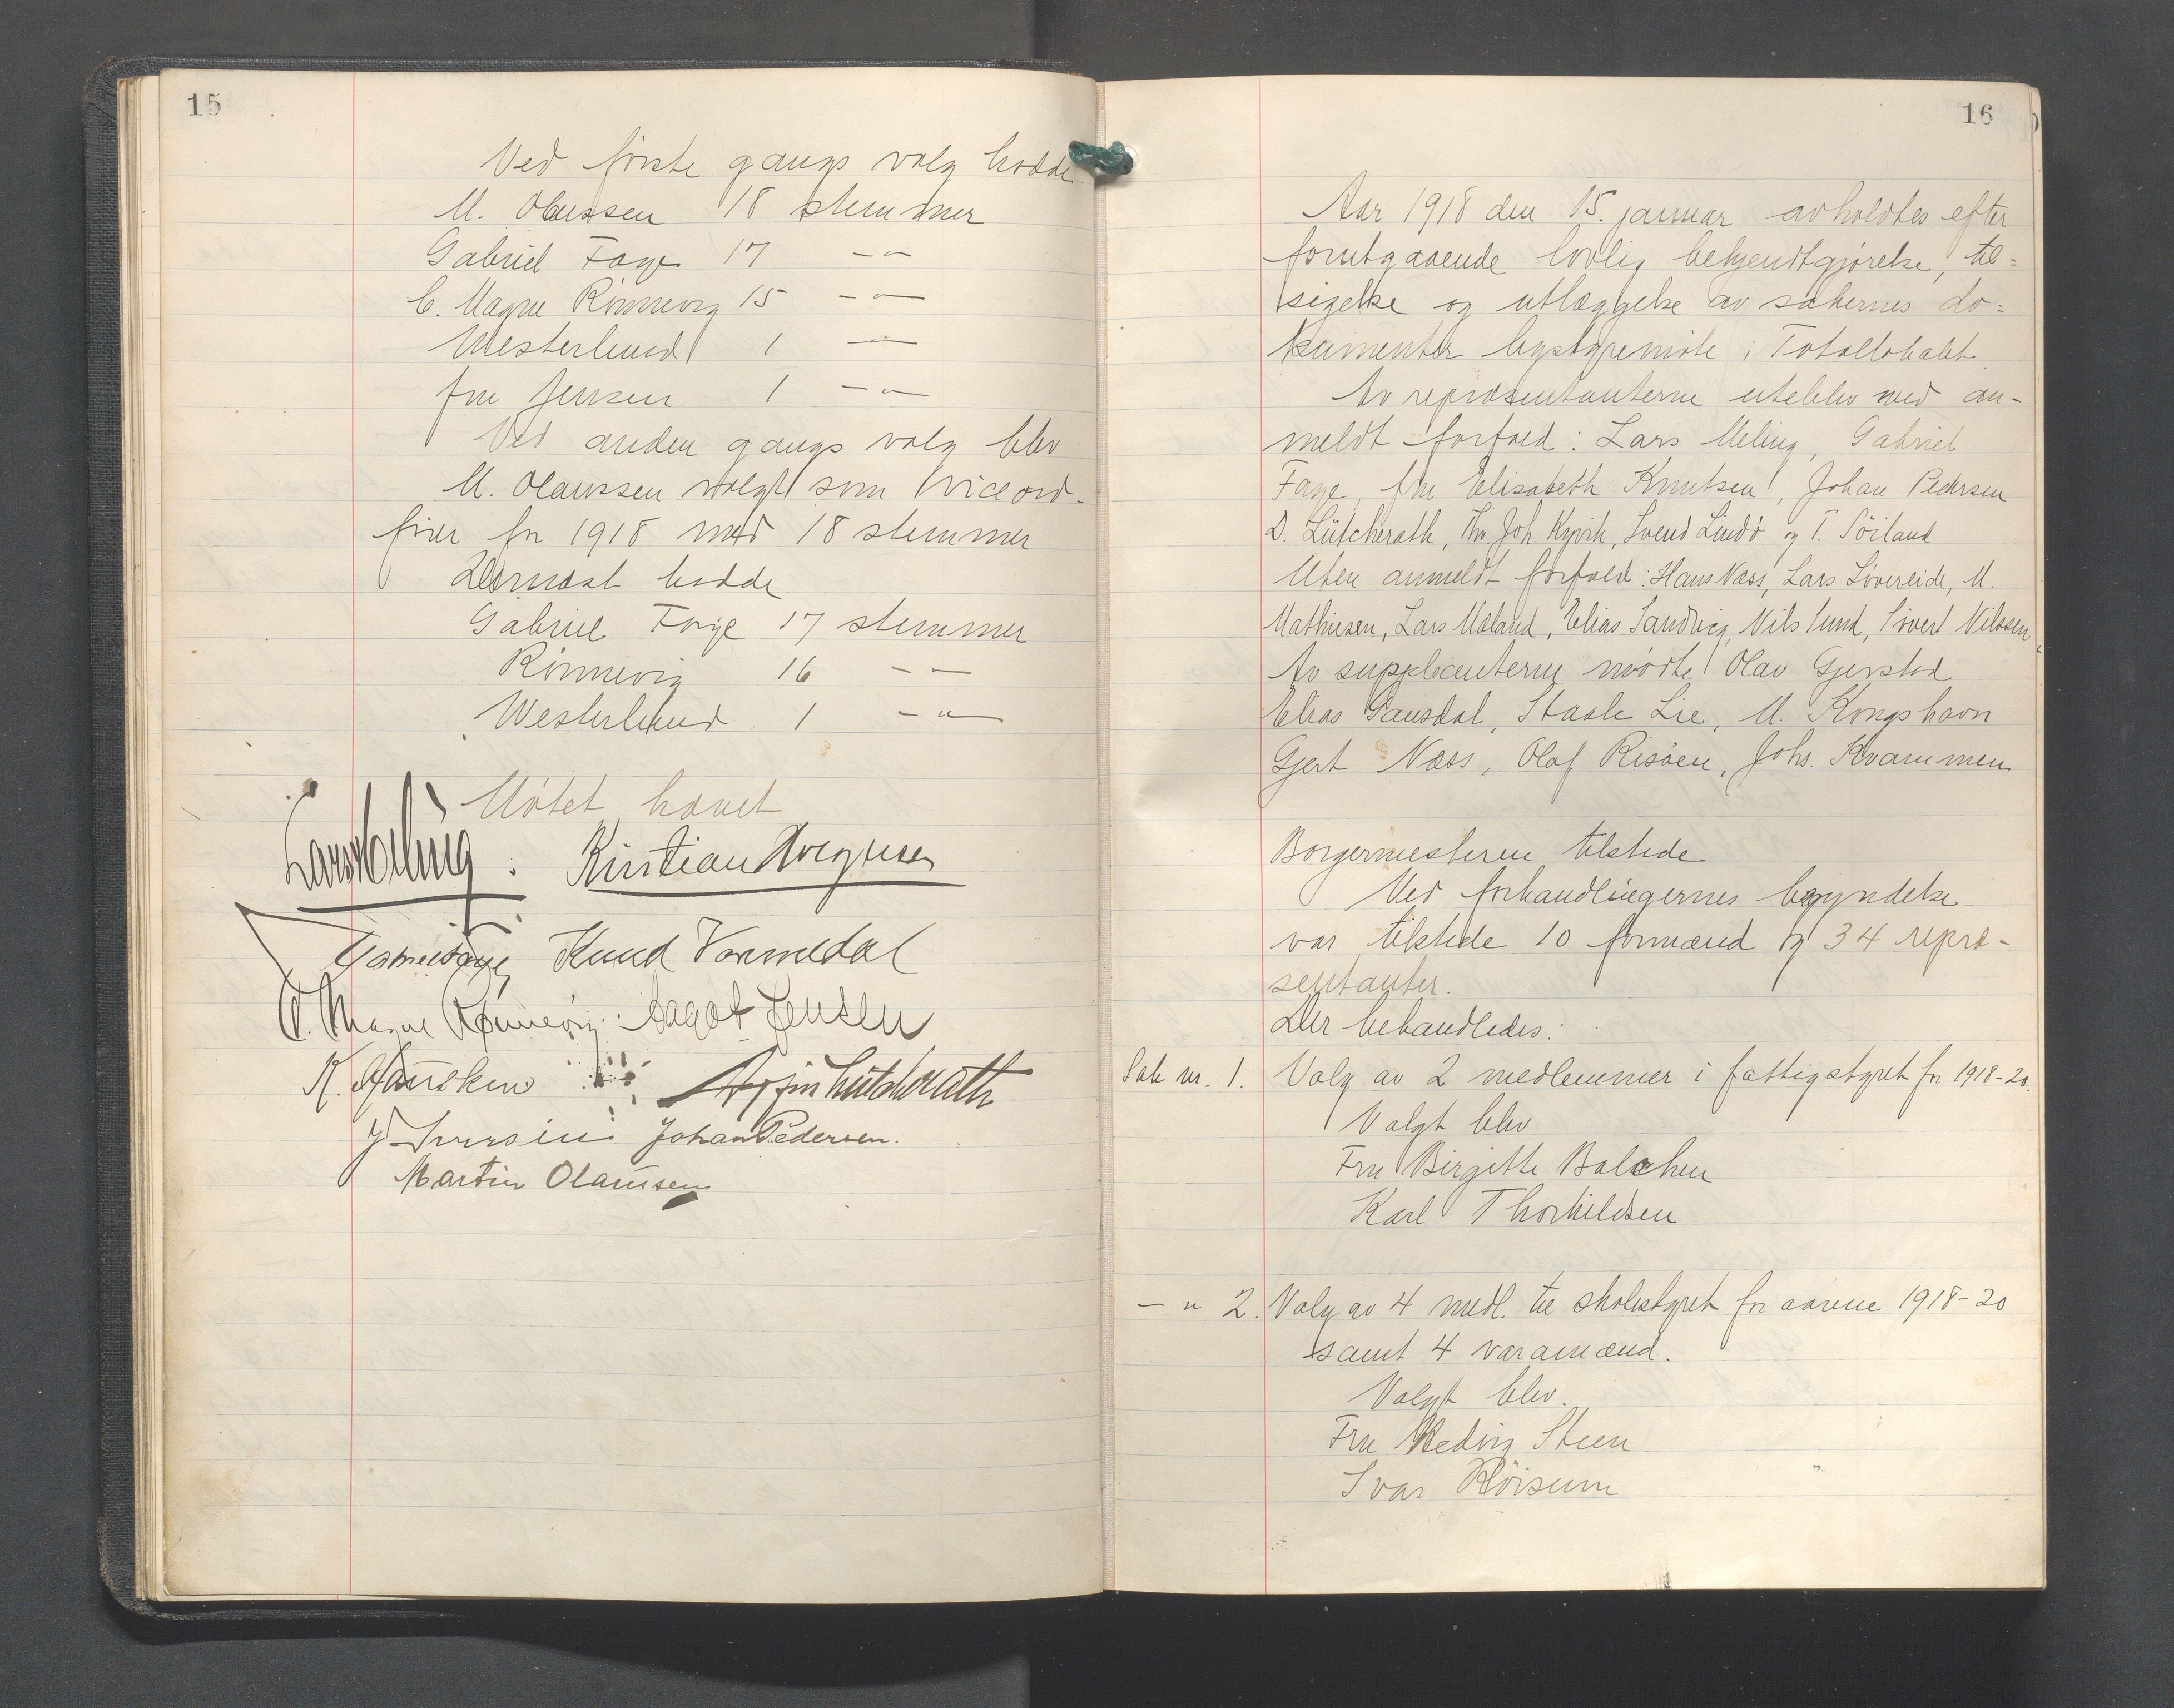 15
Ved første gangs valg hadde
M. Olaussen 18 stemmer
Gabriel Faye 17 — " —
C. Magne Rønnevig 15 — " —
Westerlund 1 — " —
fru Jensen 1 — " —
Ved anden gangs valg blev
M. Olaussen valgt som viceord-
fører for 1918 med 18 stemmer
Dernæst hadde
Gabriel Faye 17 stemmer
Rönnevig 16 — " —
Westerlund 1 — " —
Møtet hævet
Lars Meling. Kristian
Gabriel Faye Knud Vormedal
C. Magne Rønnevig. Aagot Jensen
K. Lütcherath
J Iversen Johan Pedersen.
Martin Olaussen
16
Aar 1918 den 15. januar avholdtes efter
forutgaaende lovlig bekjendtgjørelse, til=
sigelse og utlæggelse av sakernes do=
kumenter bystyremøte i Totallokalet
Av repræsentanterne uteblev med an-
meldt forfald: Lars Meling, Gabriel
Faye, fru Elisabeth Knutsen, Johan Pedersen
D. Lütcherath, Thv. Joh. Kyvik, Svend Lindö og T. Söiland
Uten anmeldt forfald: Hans Næss, Lars Løvereide, M.
Mathisen, Lars Mæland, Elias Sandvig, Nils Lund, Sivert Nilssen
Av suppleanterne mødte Olav Gjerstad
Elias Gausdal, Staale Lie, M. Kongshavn
Gjert Næss, Olaf Risøen, Johs. Kvammen
Borgermesteren tilstede
Ved forhandlingernes begyndelse
var tilstede 10 formænd og 34 repræ-
sentanter.
Der behandledes:
Sak nr. 1. Valg av 2 medlemmer i fattigstyret for 1918-20.
Valgt blev
Fru Birgitte Balchen
Karl Thorkildsen
— " 2. Valg av 4 medl. til skolestyret for aarene 1918-20
samt 4 varamænd.
Valgt blev.
Fru Hedvig Steen
Ivar Röisum